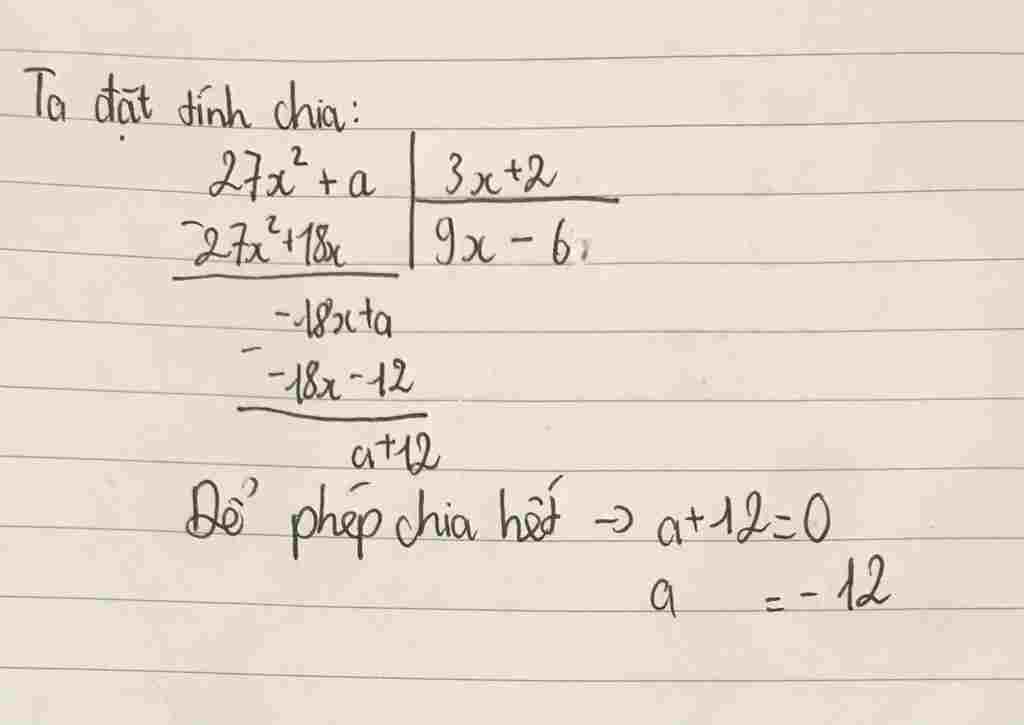 Ta đặt tính chia:
27x² + a | 3x+2
-27x²+18x | 9x - 6
-18x+a
-
-18x - 12
a+12
Để phép chia hết → a+12=0
a = -12